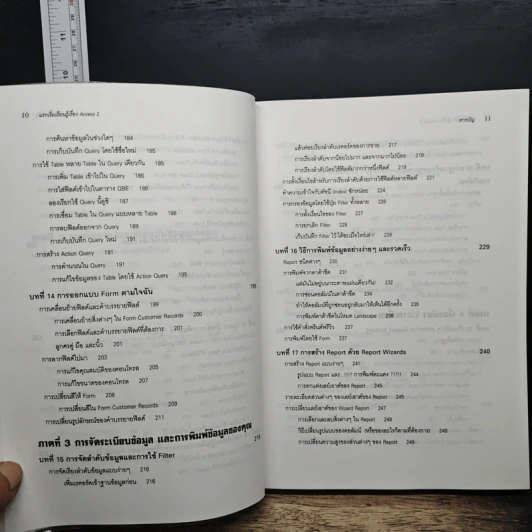 10 แรกเริ่มเรียนรู้เรื่อง Access 2
การค้นหาข้อมูลในช่วงใดๆ 184
การเก็บบันทึก Query โดยใช้ชื่อใหม่ 185
การใช้ Table หลาย Table ใน Query เดียวกัน 185
การเพิ่ม Table เข้าไปใน Query 186
การใส่ฟิลด์เข้าไปในตาราง QBE 186
ลองเรียกใช้ Query นี้ดูซิ 187
การเชื่อม Table ใน Query แบบหลาย Table 188
การลบฟิลด์ออกจาก Query 190
การเก็บบันทึก Query ใหม่ 191
การสร้าง Action Query 191
การคำนวณใน Query 191
การแก้ไขข้อมูลของ Table โดยใช้ Action Query 195
บทที่ 14 การออกแบบ Form ตามใจฉัน
การเคลื่อนย้ายฟิลด์และคำบรรยายฟิลด์
การเคลื่อนย้ายสิ่งต่างๆ ใน Form Customer Records 200
การเลือกฟิลด์และคำบรรยายฟิลด์ที่ต้องการ 201
ลูกศรคู่ มือ และนิ้ว 201
การลากฟิลด์ไปมา 203
การแก้ไขคุณสมบัติของคอนโทรล 205
การแก้ไขขนาดของคอนโทรล 207
การเปลี่ยนสีให้ Form 208
การเปลี่ยนสีใน Form Customer Records 209
การเปลี่ยนรูปลักษณ์ของคำบรรยายฟิลด์ 211
ภาคที่ 3 การจัดระเบียบข้อมูล และการพิมพ์ข้อมูลของคุณ 215
บทที่ 15 การจัดลำดับข้อมูลและการใช้ Filter
การจัดเรียงลำดับข้อมูลแบบง่ายๆ 216
เพิ่มเรคคอร์ดเข้าฐานข้อมูลก่อน 216
สารบัญ 11
แล้วค่อยเรียงลำดับเรคคอร์ดของการขาย 217
การเรียงลำดับจากน้อยไปมาก และจากมากไปน้อย 218
การเรียงลำดับโดยใช้ฟิลด์มากกว่าหนึ่งฟิลด์ 219
การตั้งเงื่อนไขสำหรับการเรียงลำดับด้วยการใช้ฟิลด์หลายฟิลด์ 221
ทำความเข้าใจกับดัชนี (index) ซักหน่อย 224
การกรองข้อมูลโดยใช้ปุ่ม Filter ทั้งหลาย 224
การตั้งเงื่อนไขของ Filter 224
การยกเลิก Filter 227
เก็บบันทึก Filter ไว้ใช้ต่อเมื่อไหร่ล่ะ? 227
บทที่ 16 วิธีการพิมพ์ข้อมูลอย่างง่ายๆ และรวดเร็ว 229
Report ชนิดต่างๆ 230
การพิมพ์จากดาต้าชีต 230
แต่มันไม่อยู่บนกระดาษแผ่นเดียวกัน! 231
การซ่อนคอลัมน์ในดาต้าชีต 232
ทำให้คอลัมน์ที่ถูกซ่อนอยู่กลับมาให้เห็นได้อีกครั้ง 234
การพิมพ์ดาต้าชีตในโหมด Landscape 234
การใช้คำสั่งพรินต์พรีวิว 235
การพิมพ์โดยใช้ Form 237
บทที่ 17 การสร้าง Report ด้วย Report Wizards 240
การสร้าง Report แบบง่ายๆ 241
การตกแต่งเลย์เอาต์ของ Report 245
รายละเอียดส่วนต่างๆ ของเลย์เอาต์ของ Report 245
การเปลี่ยนเลย์เอาต์ของ Wizard Report 245
การเลือกและลบสิ่งต่างๆ ใน Report 246
การเปลี่ยนความสูงของส่วนต่างๆ ของ Report